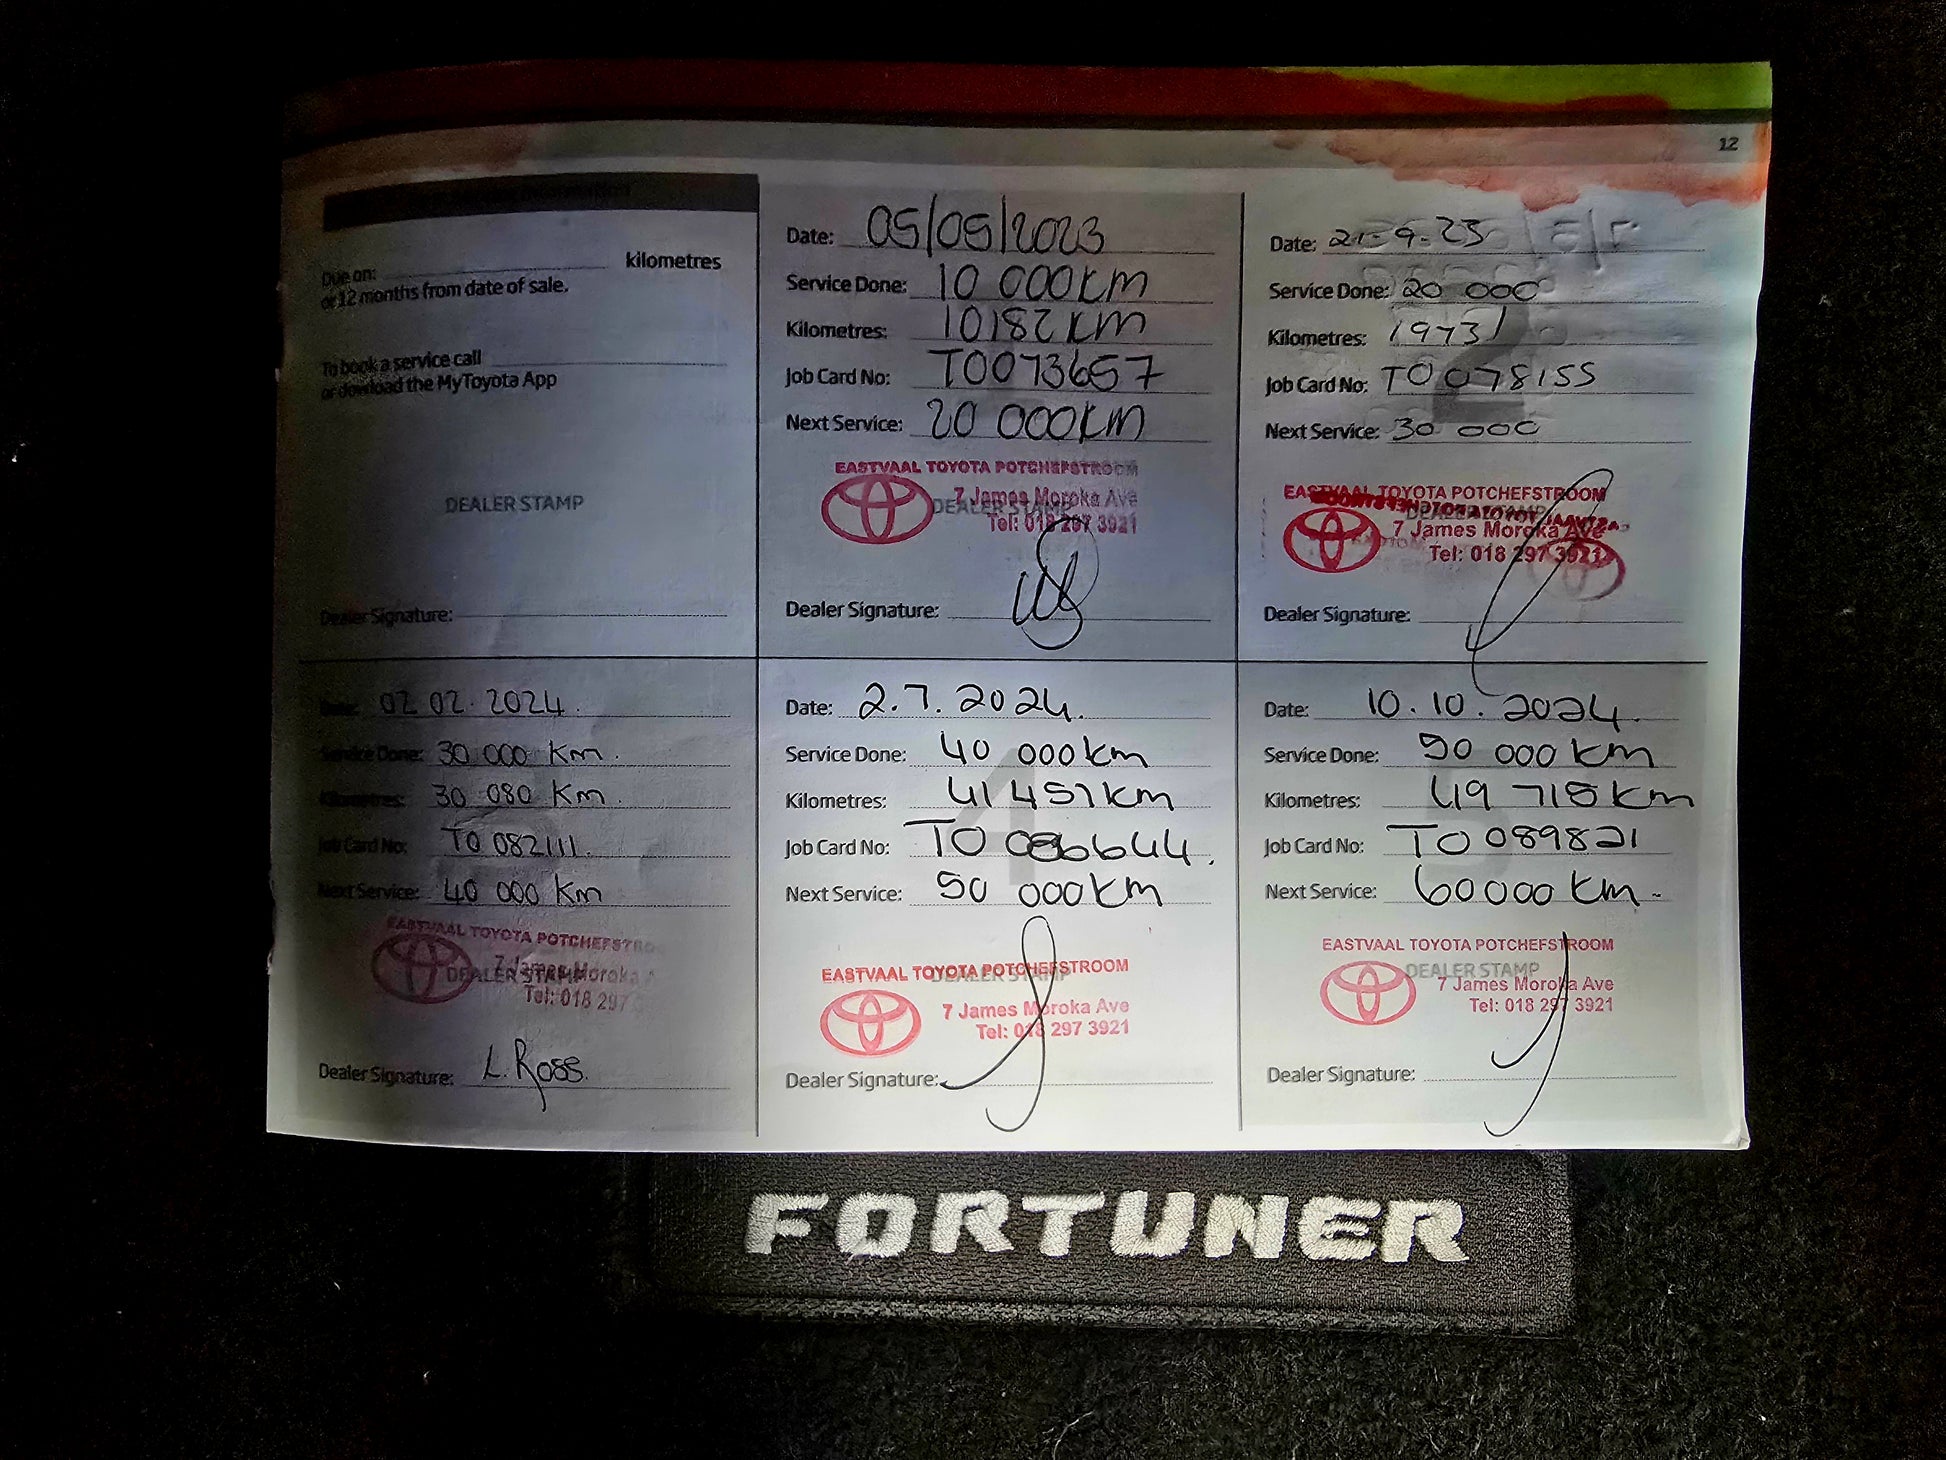 12
Due on: kilometres
or 12 months from date of sale.
To book a service call
or download the MyToyota App
DEALER STAMP
Dealer Signature:
Date: 05/05/2023
Service Done: 10 000km
Kilometres: 10182km
Job Card No: T0073657
Next Service: 20 000km
EASTVAAL TOYOTA POTCHEFSTROOM
DEALER STAMP
7 James Moroka Ave
Tel: 018 297 3921
Dealer Signature:
Date: 21-9-23
Service Done: 20 000
Kilometres: 19731
Job Card No: T0078155
Next Service: 30 000
EASTVAAL TOYOTA POTCHEFSTROOM
7 James Moroka Ave
Tel: 018 297 3921
Dealer Signature:
Date: 02.02.2024.
Service Done: 30 000 Km.
Kilometres: 30 080 Km.
Job Card No: T0 082111.
Next Service: 40 000 Km
EASTVAAL TOYOTA POTCHEFSTROO
DEALER STAMP
7 James Moroka
Tel: 018 297
Dealer Signature: L. Ross.
Date: 2.7.2024.
Service Done: 40 000km
Kilometres: 41 457km
Job Card No: T0 086644.
Next Service: 50 000km
EASTVAAL TOYOTA POTCHEFSTROOM
DEALER STAMP
7 James Moroka Ave
Tel: 018 297 3921
Dealer Signature:
Date: 10.10.2024.
Service Done: 50 000km
Kilometres: 49 718km
Job Card No: T0089821
Next Service: 60000km-
EASTVAAL TOYOTA POTCHEFSTROOM
DEALER STAMP
7 James Moroka Ave
Tel: 018 297 3921
Dealer Signature:
FORTUNER